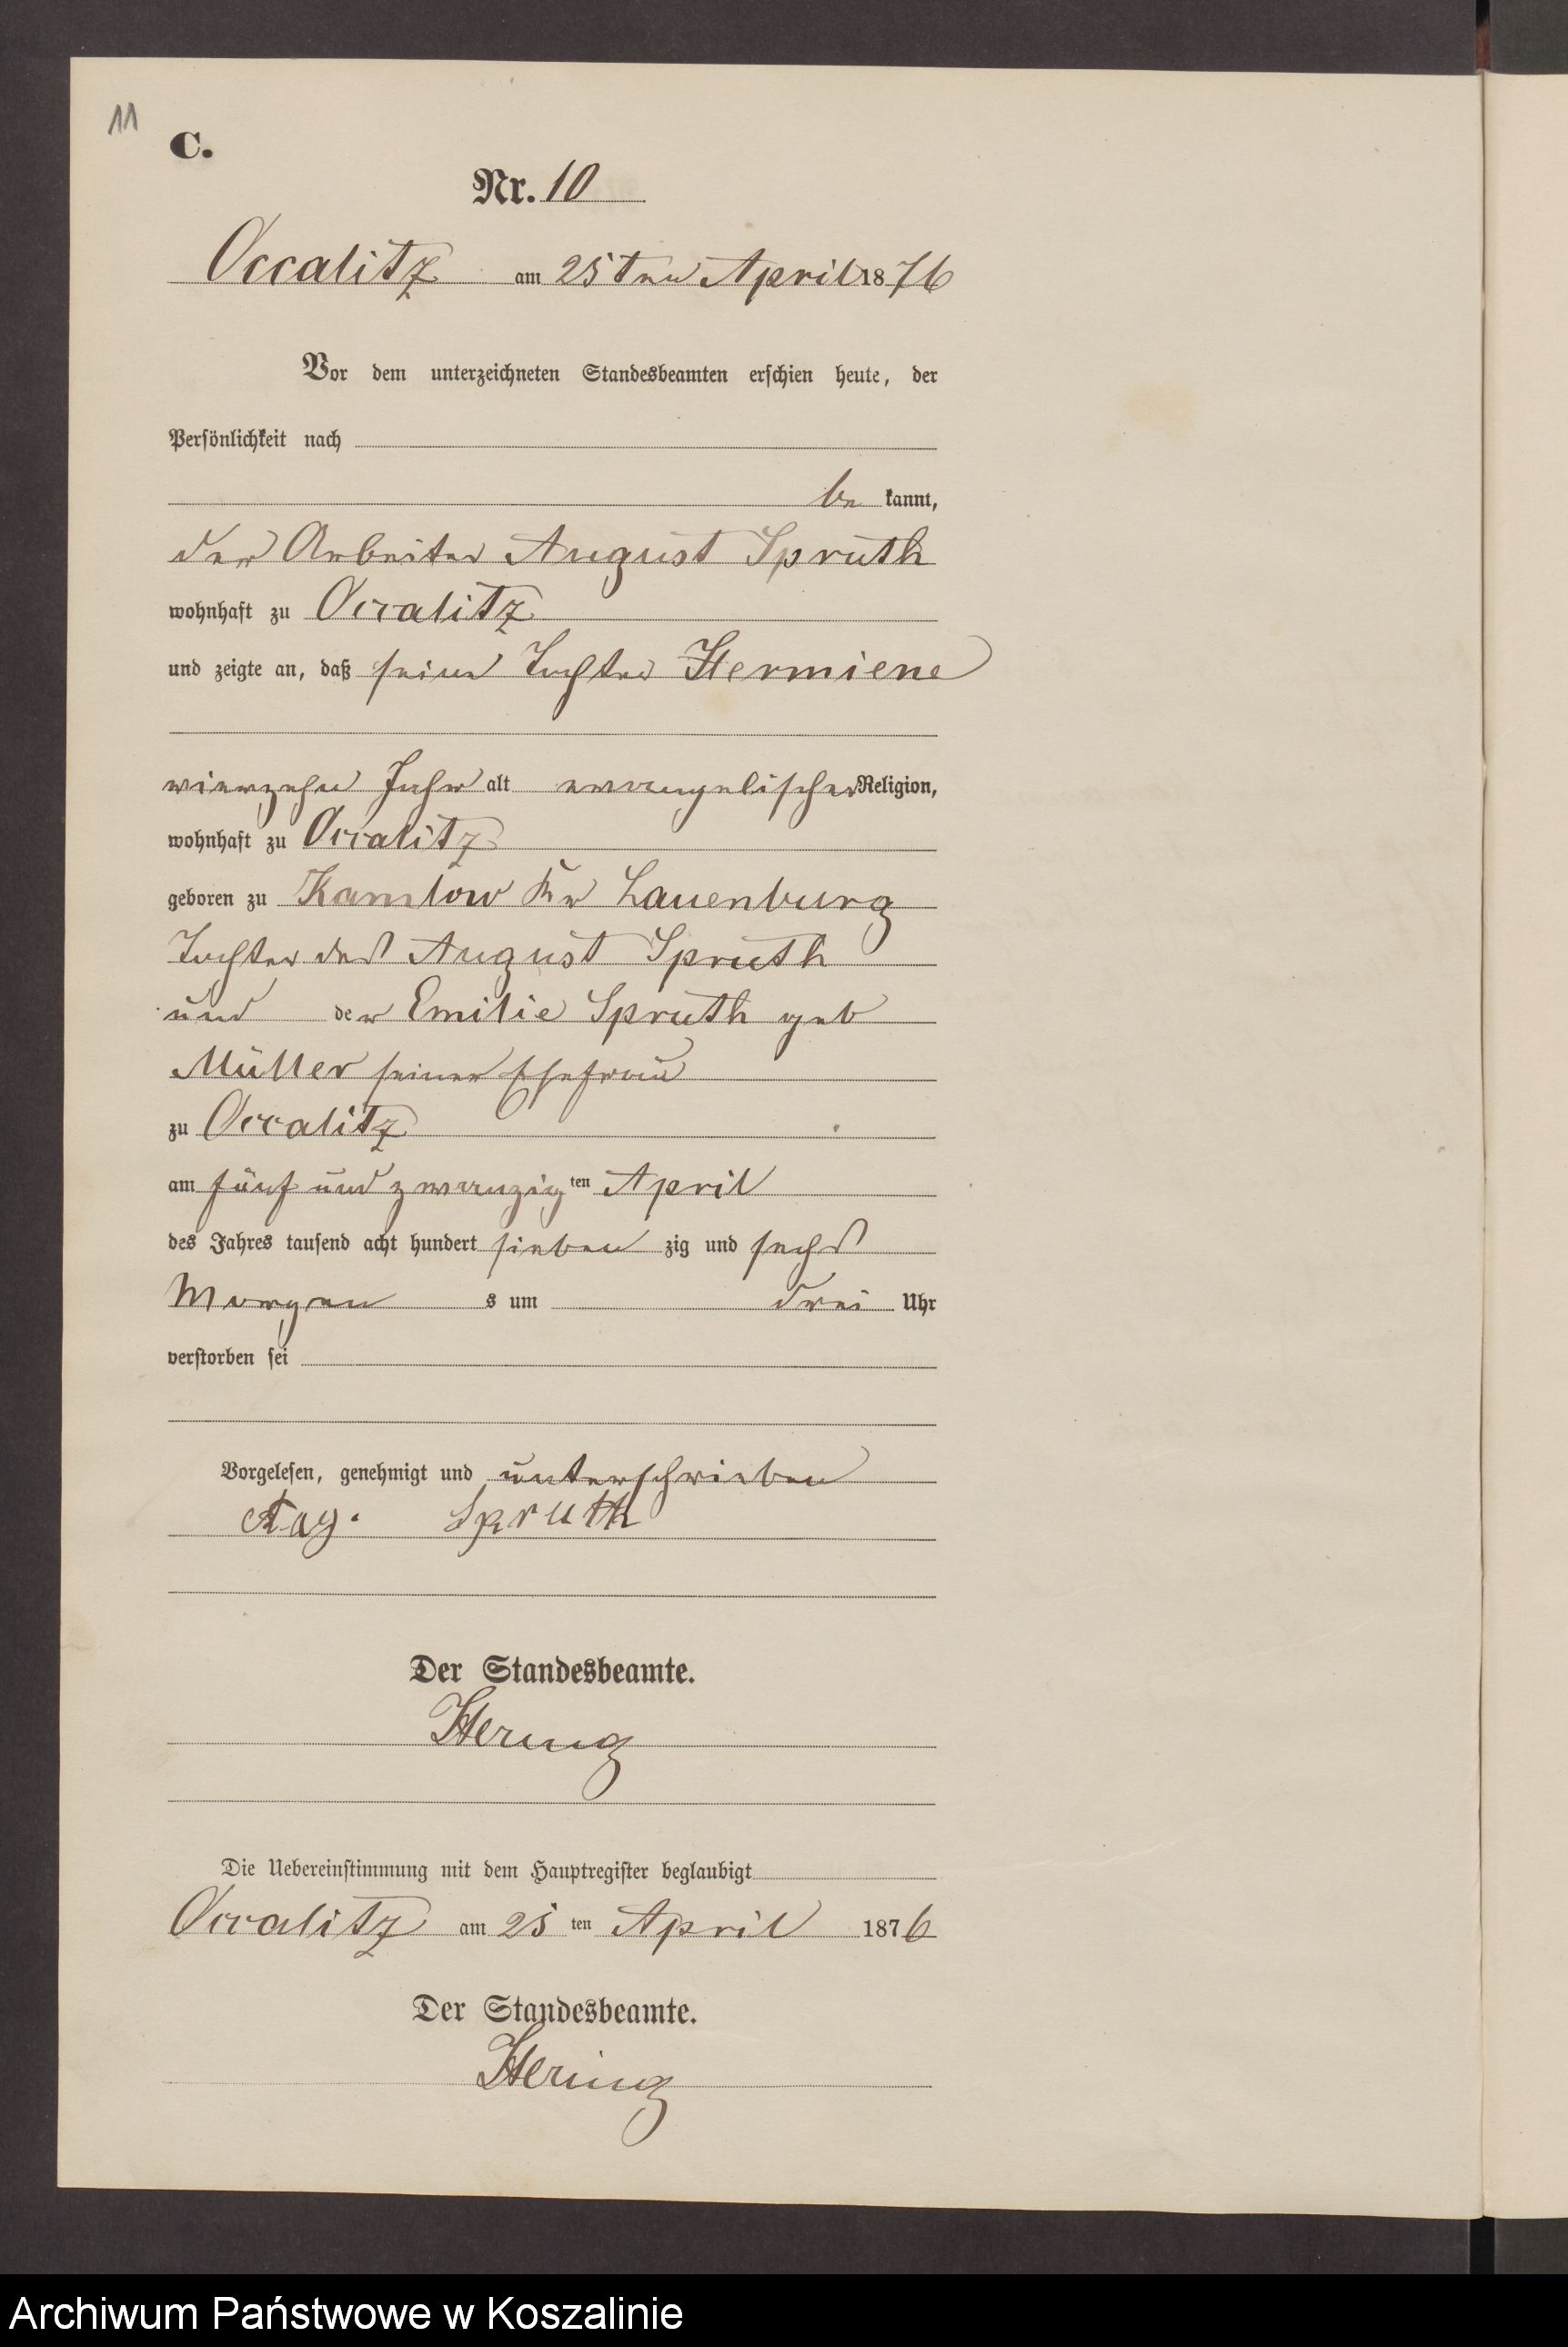 11
C.
Nr. 10
Occalitz am 25ten April 1876
Vor dem unterzeichneten Standesbeamten erschien heute, der
Persönlichkeit nach
be kannt,
der Arbeiter August Spruth
wohnhaft zu Occalitz
und zeigte an, daß seine Tochter Hermiene
vierzehn Jahr alt evangelischer Religion,
wohnhaft zu Occalitz
geboren zu Kamlow Kr Lauenburg
Tochter des August Spruth
und der Emilie Spruth geb
Müller seiner Ehefrau
zu Occalitz
am fünf und zwanzig ten April
des Jahres tausend acht hundert sieben zig und sechs
Morgen s um drei Uhr
verstorben sei
Vorgelesen, genehmigt und unterschrieben
Aug. Spruth
Der Standesbeamte.
Hering
Die Uebereinstimmung mit dem Hauptregister beglaubigt
Occalitz am 25 ten April 1876
Der Standesbeamte.
Hering
Archiwum Państwowe w Koszalinie